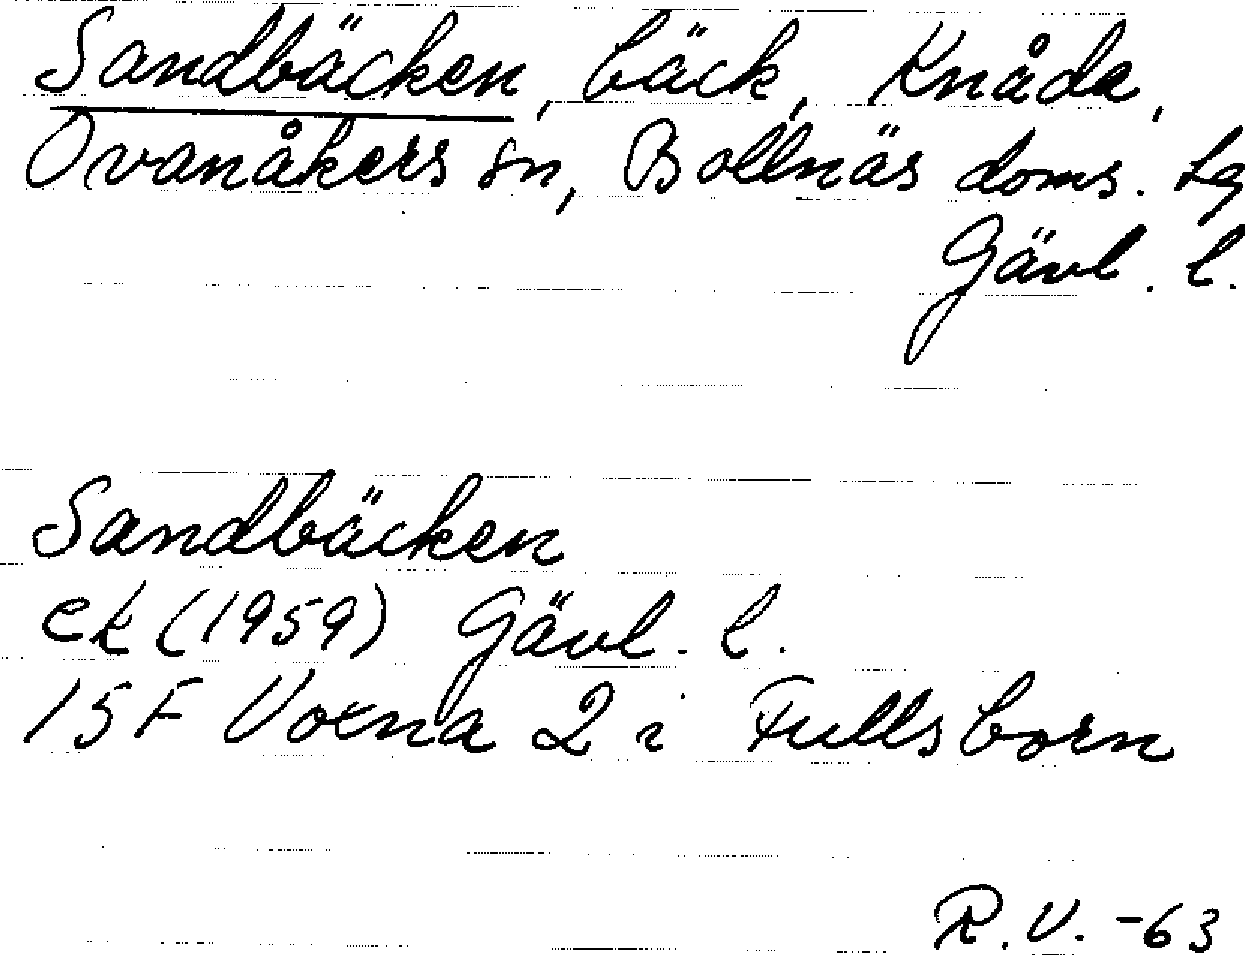 Sandbäcken, bäck, Knåda,
Ovanåkers sn, Bollnäs doms. tg
Gävl. l.
Sandbäcken
ek (1959) Gävl. l.
15F Voxna 2 i Fullsborn
R.V. -63